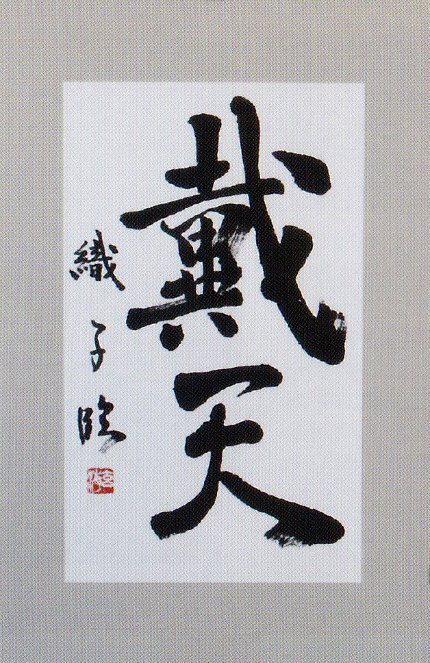 戴天
織子臨